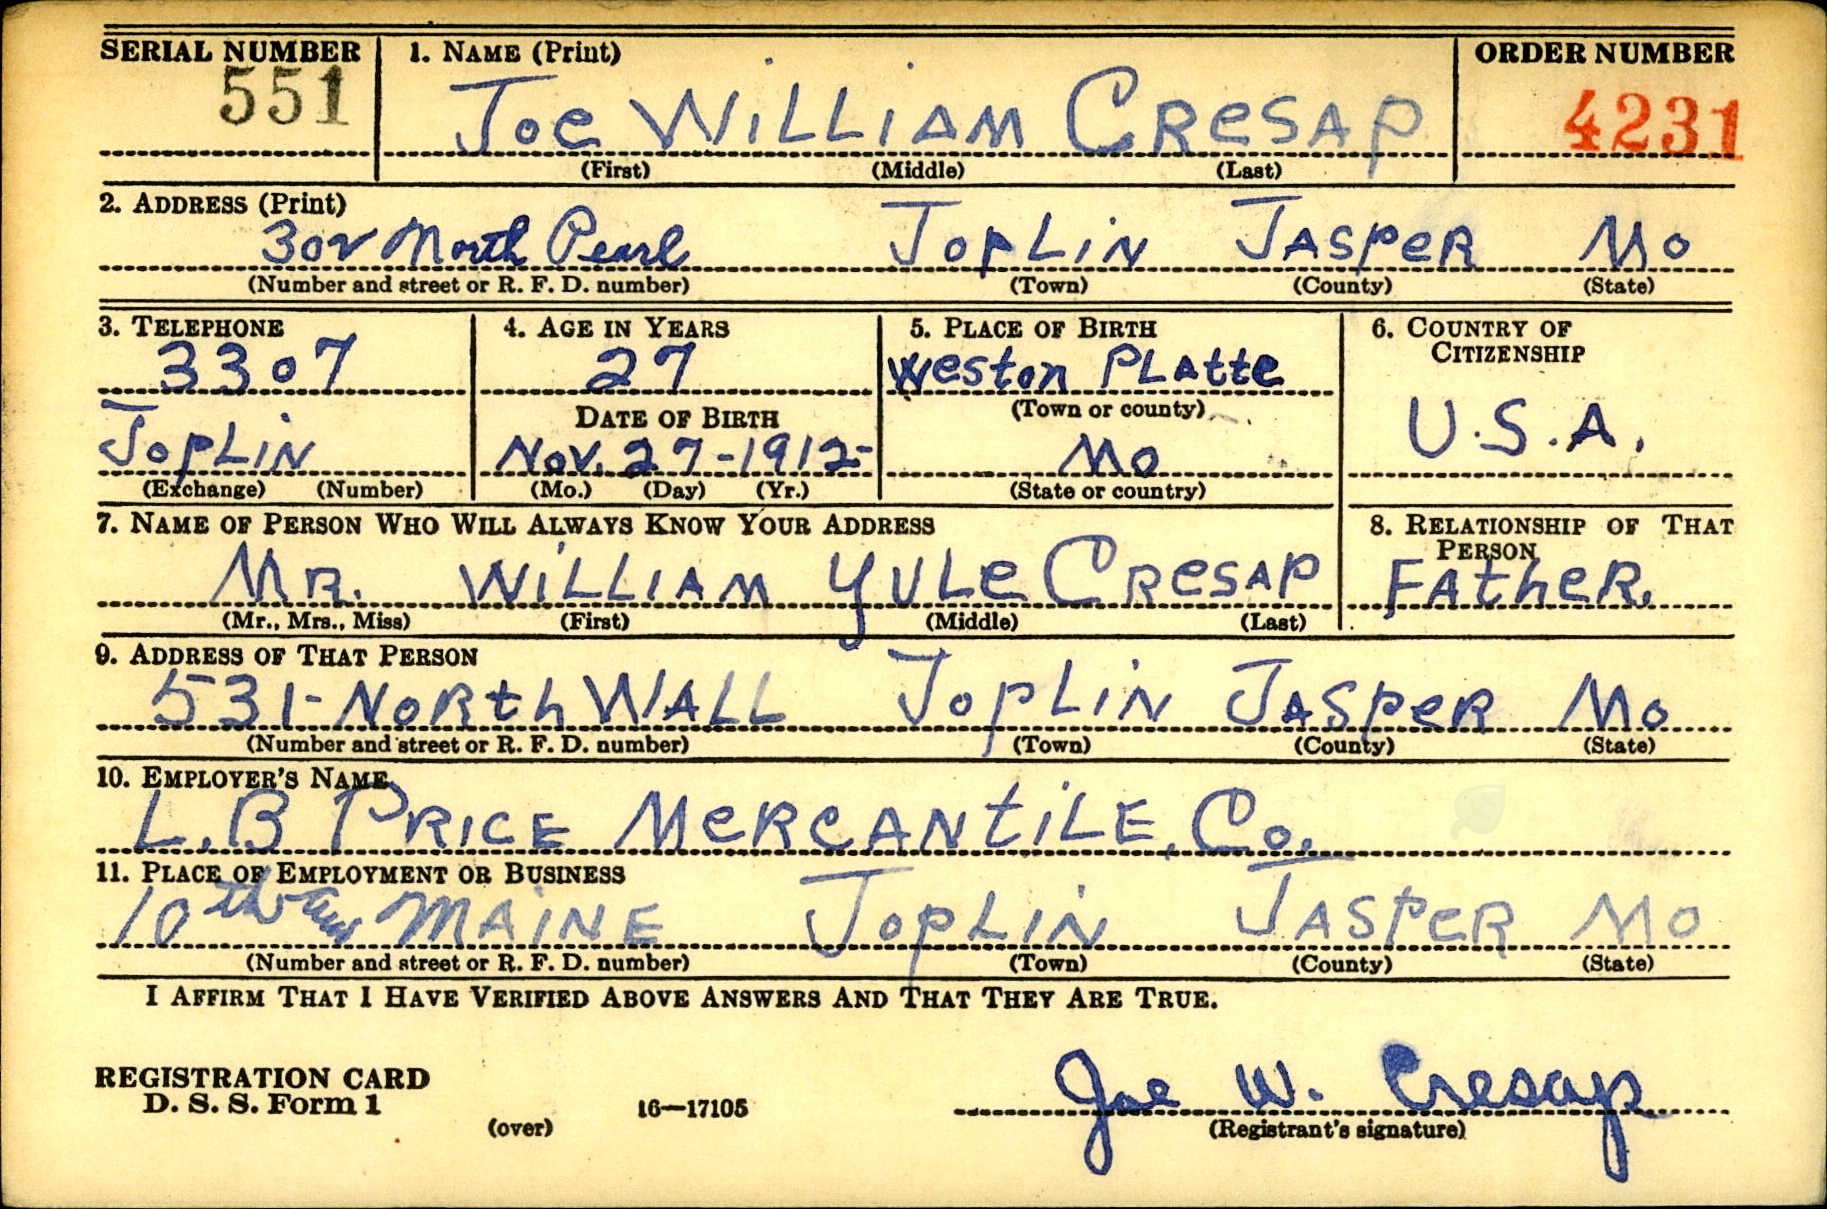 SERIAL NUMBER 1. NAME (Print) ORDER NUMBER
551 JOE WILLIAM CRESAP 4231
(First) (Middle) (Last)
2. ADDRESS (Print)
302 North Pearl JOPLIN JASPER MO
(Number and street or R. F. D. number) (Town) (County) (State)
3. TELEPHONE 4. AGE IN YEARS 5. PLACE OF BIRTH 6. COUNTRY OF CITIZENSHIP
3307 27 Weston PLAtte
DATE OF BIRTH (Town or county) U.S.A.
JOPLIN Nov. 27-1912- MO
(Exchange) (Number) (Mo.) (Day) (Yr.) (State or country)
7. NAME OF PERSON WHO WILL ALWAYS KNOW YOUR ADDRESS 8. RELATIONSHIP OF THAT PERSON
MR. WILLIAM YULE CRESAP FAtheR.
(Mr., Mrs., Miss) (First) (Middle) (Last)
9. ADDRESS OF THAT PERSON
531-NORth WALL JOPLIN JASPER MO
(Number and street or R. F. D. number) (Town) (County) (State)
10. EMPLOYER'S NAME
L.B PRICE MERCANtILE, Co.
11. PLACE OF EMPLOYMENT OR BUSINESS
10th MAINE JOPLIN JASPER MO
(Number and street or R. F. D. number) (Town) (County) (State)
I AFFIRM THAT I HAVE VERIFIED ABOVE ANSWERS AND THAT THEY ARE TRUE.
REGISTRATION CARD
D. S. S. Form 1
(over) 16—17105
Joe W. Cresap
(Registrant's signature)